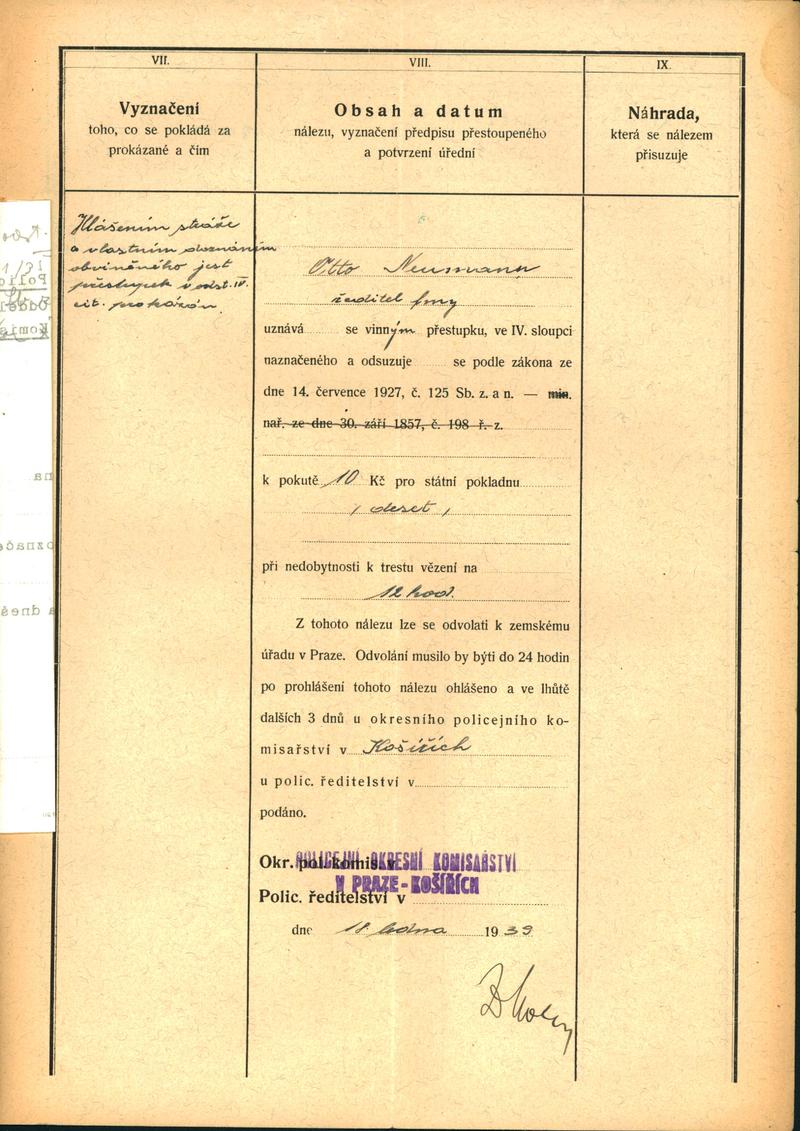 VII.
Vyznačení
toho, co se pokládá za
prokázané a čím
VIII.
Obsah a datum
nálezu, vyznačení předpisu přestoupeného
a potvrzení úřední
IX.
Náhrada,
která se nálezem
přisuzuje
Hlášením stráže
a vlastním doznáním
obviněného jest
přestupek v odst. IV.
cit. prokázán.
Otto Neumann
ředitel fmy
uznává se vinným přestupku, ve IV. sloupci
naznačeného a odsuzuje se podle zákona ze
dne 14. července 1927, č. 125 Sb. z. a n. — min.
nař. ze dne 30. září 1857, č. 198 ř. z.
k pokutě 10 Kč pro státní pokladnu
/ deset /
při nedobytnosti k trestu vězení na
12 hod.
Z tohoto nálezu lze se odvolati k zemskému
úřadu v Praze. Odvolání musilo by býti do 24 hodin
po prohlášení tohoto nálezu ohlášeno a ve lhůtě
dalších 3 dnů u okresního policejního ko-
misařství v Košířích
u polic. ředitelství v
podáno.
Okr. pol. komis. v
POLICEJNÍ OKRESNÍ KOMISAŘSTVÍ
V PRAZE-KOŠÍŘÍCH
Polic. ředitelství v
dne 18. ledna 1939